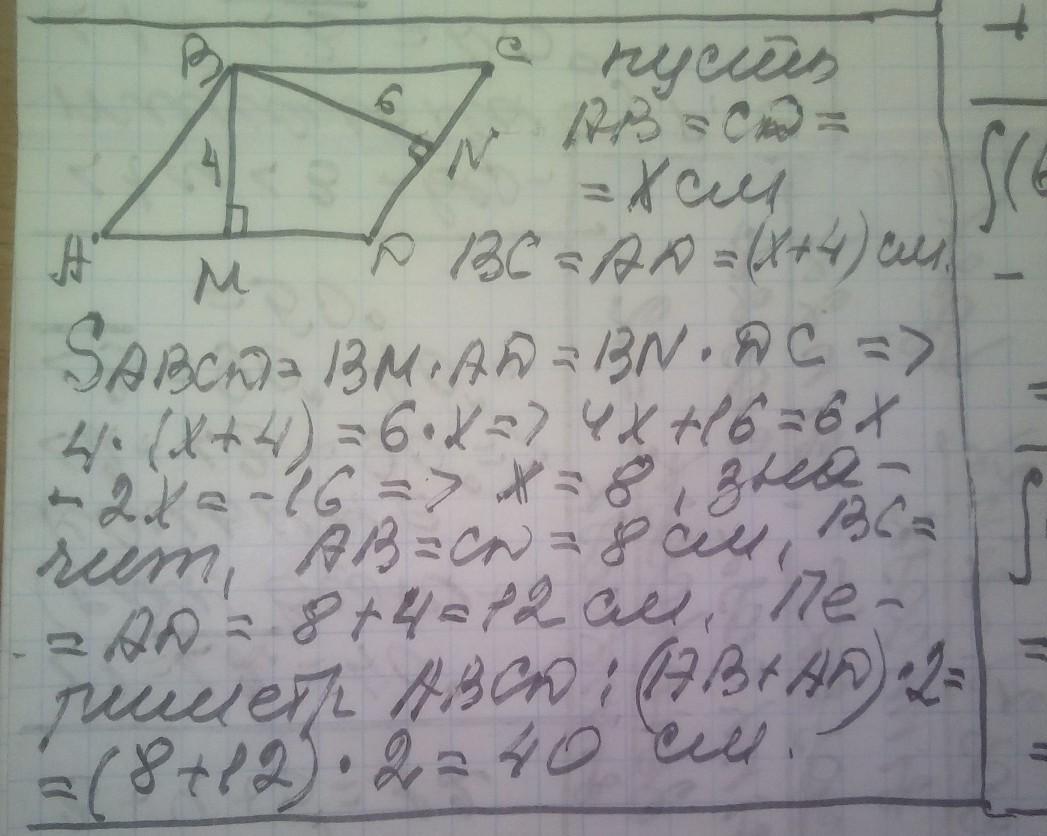 B C
6
4
N
A M D
пусть
AB = CD =
= x см
BC = AD = (x+4) см.
SABCD = BM · AD = BN · DC =>
4 · (x+4) = 6 · x => 4x+16=6x
-2x = -16 => x = 8, зна-
чит, AB = CD = 8 см, BC =
= AD = 8+4=12 см. Пе-
риметр ABCD: (AB+AD)·2=
=(8+12)·2=40 см.
+
∫(6
-
=
∫
=
=